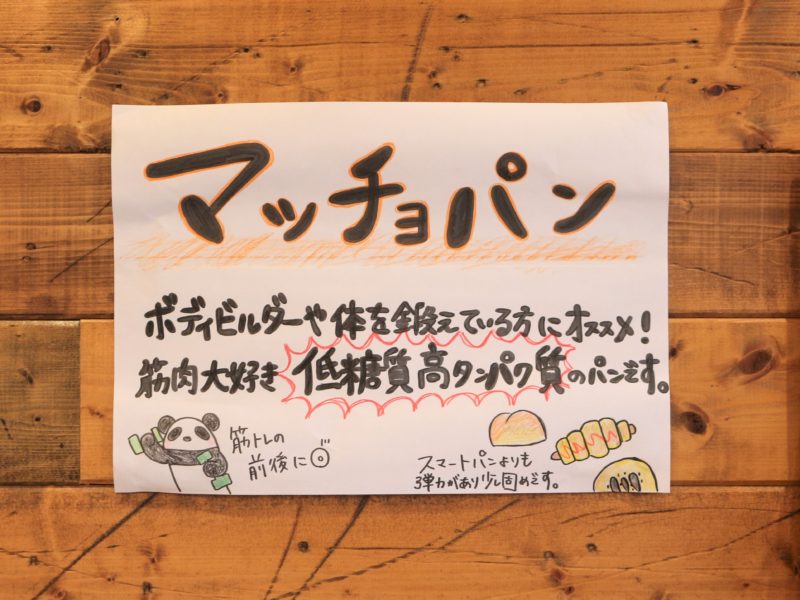 マッチョパン
ボディビルダーや体を鍛えている方にオススメ!
筋肉大好き 低糖質高タンパク質のパンです。
筋トレの
前後に◎
スマートパンよりも
弾力があり少し固めです。